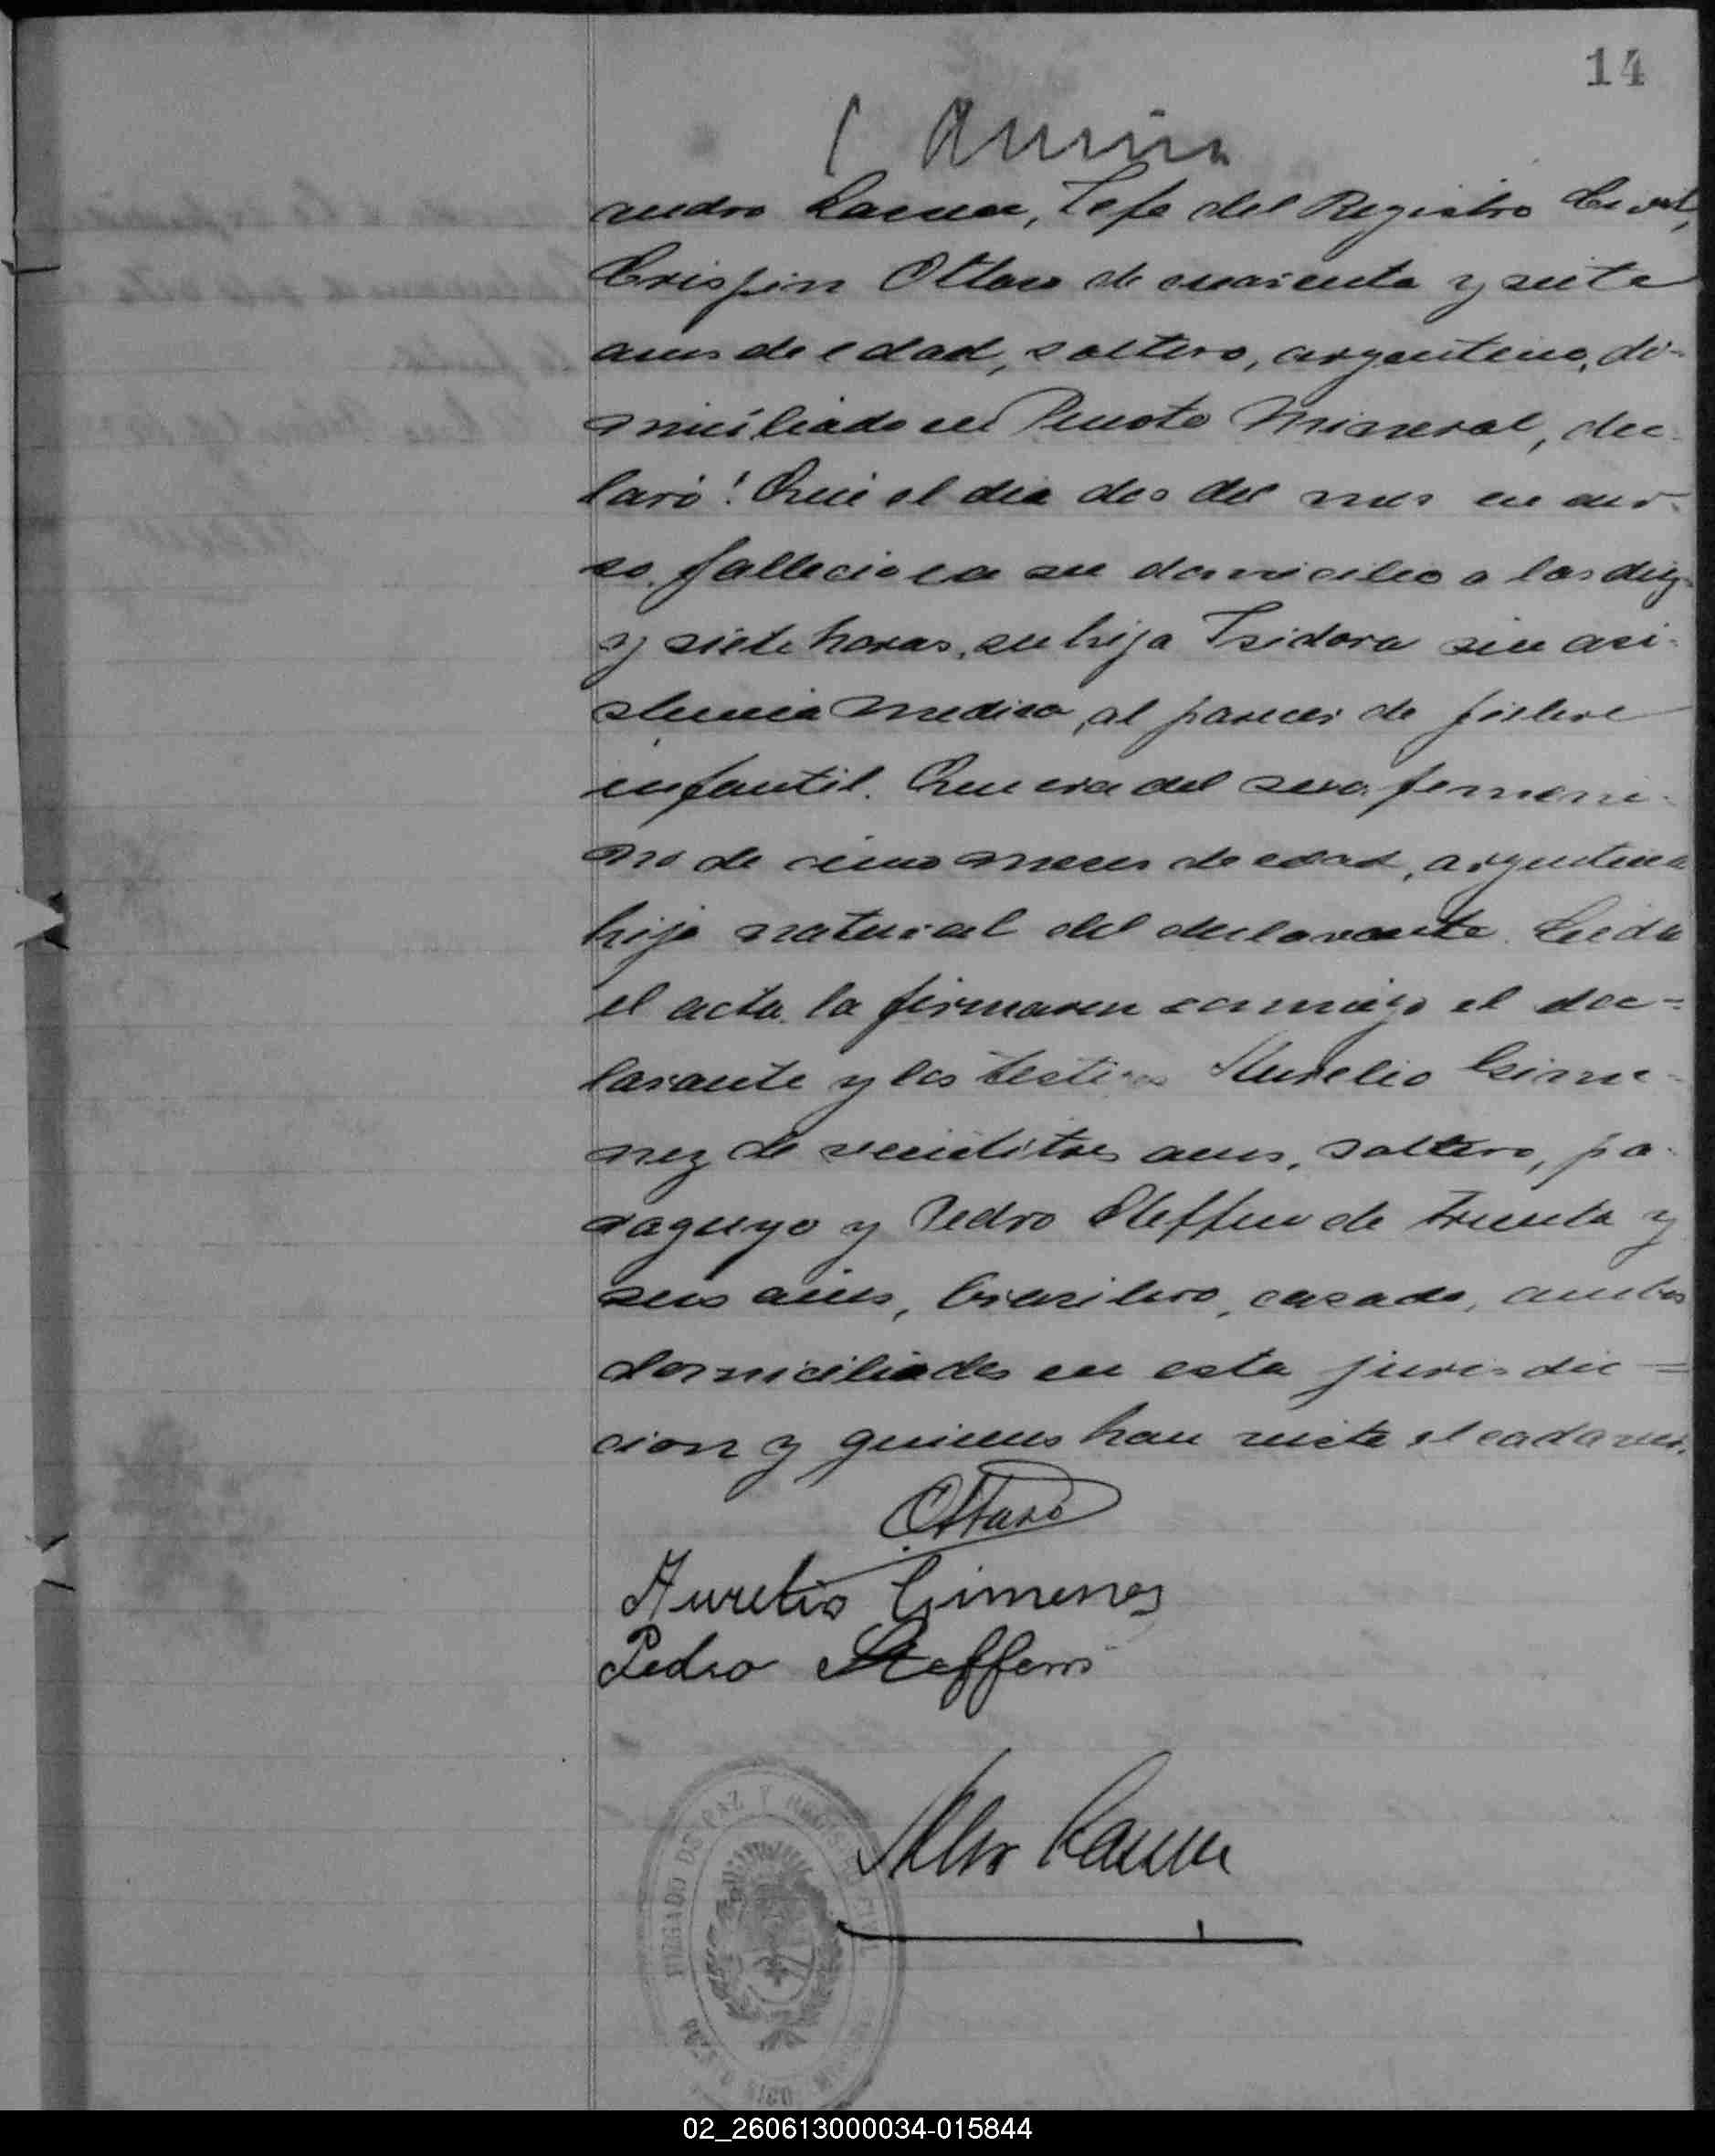 14
andro Lasser, Jefe del Registro Civil,
Crispin Ottaro de cuarenta y siete
anos de edad, soltero, argentino, do-
miciliado en Puerto Mineral, dec-
laró: Que el dia dos del mes en cur-
so, fallecio en su domicilio a las diez
y siete horas, su hija Isidora sin asi-
stencia medica, al parecer de fiebre
infantil. Que era del sexo femeni-
no de cinco meses de edad, argentina
hija natural del declarante. Leida
el acta, la firmaron conmigo el dec-
larante y los testigos Aurelio Gime-
nez de veintitres anos, soltero, pa-
raguyo y Pedro Steffen de treinta y
seis anos, brasilero, casado, ambos
domiciliados en esta jurisdic-
cion y quienes han visto el cadaver.
Ottaro
Aurelio Gimenez
Pedro Steffens
JUZGADO DE PAZ Y REGISTRO CIVIL